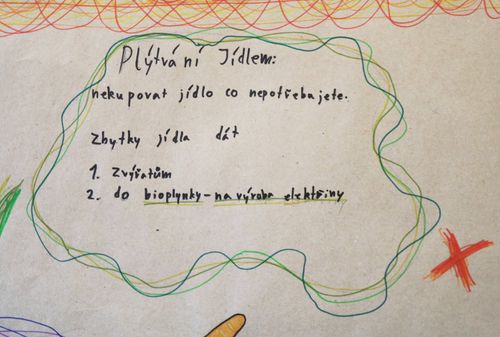 Plýtvání Jídlem:
nekupovat jídlo co nepotřebajete.
Zbytky jídla dát
1. Zvířatům
2. do bioplynky - na výroba elektřiny